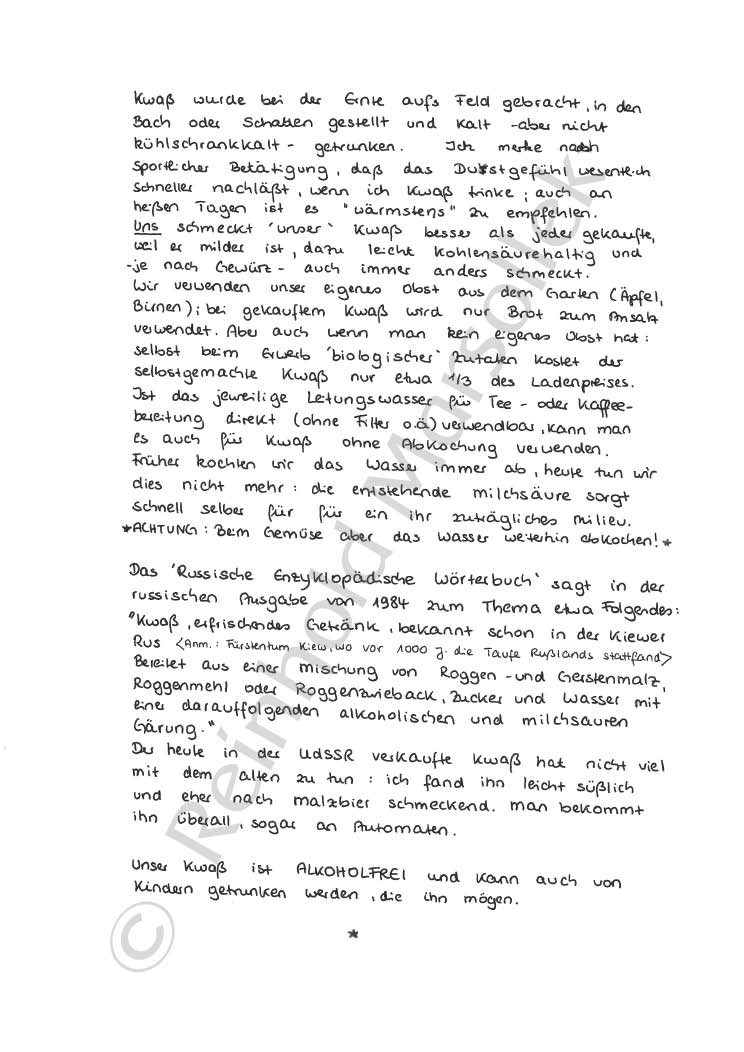 Kwaß wurde bei der Ernte aufs Feld gebracht, in den
Bach oder Schatten gestellt und kalt -aber nicht
kühlschrankkalt- getrunken. Ich merke nach
sportlicher Betätigung, daß das Durstgefühl wesentlich
schneller nachläßt, wenn ich Kwaß trinke; auch an
heißen Tagen ist es "wärmstens" zu empfehlen.
Uns schmeckt 'unser' Kwaß besser als jeder gekaufte,
weil er milder ist, dazu leicht kohlensäurehaltig und
-je nach Gewürz- auch immer anders schmeckt.
Wir verwenden unser eigenes Obst aus dem Garten (Äpfel,
Birnen); bei gekauftem Kwaß wird nur Brot zum Ansatz
verwendet. Aber auch wenn man kein eigenes Obst hat:
selbst beim Erwerb 'biologischer' Zutaten kostet der
selbstgemachte Kwaß nur etwa 1/3 des Ladenpreises.
Ist das jeweilige Letungswasser für Tee- oder Kaffee-
bereitung direkt (ohne Filter o.ä) verwendbar, kann man
es auch für Kwaß ohne Abkochung verwenden.
Früher kochten wir das Wasser immer ab, heute tun wir
dies nicht mehr: die entstehende Milchsäure sorgt
schnell selber für für ein ihr zuträgliches Milieu.
*ACHTUNG: Beim Gemüse aber das Wasser weiterhin abkochen!*
Das 'Russische Enzyklopädische Wörterbuch' sagt in der
russischen Ausgabe von 1984 zum Thema etwa Folgendes:
"Kwaß, erfrischendes Getränk, bekannt schon in der Kiewer
Rus <Anm.: Fürstentum Kiew, wo vor 1000 J. die Taufe Rußlands stattfand>
Bereitet aus einer Mischung von Roggen- und Gerstenmalz,
Roggenmehl oder Roggenzwieback, Zucker und Wasser mit
einer darauffolgenden alkoholischen und milchsauren
Gärung."
Der heute in der UdSSR verkaufte Kwaß hat nicht viel
mit dem alten zu tun: ich fand ihn leicht süßlich
und eher nach Malzbier schmeckend. Man bekommt
ihn überall, sogar an Automaten.
Unser Kwaß ist ALKOHOLFREI und kann auch von
Kindern getrunken werden, die ihn mögen.
*
© Reinhold Marsollek